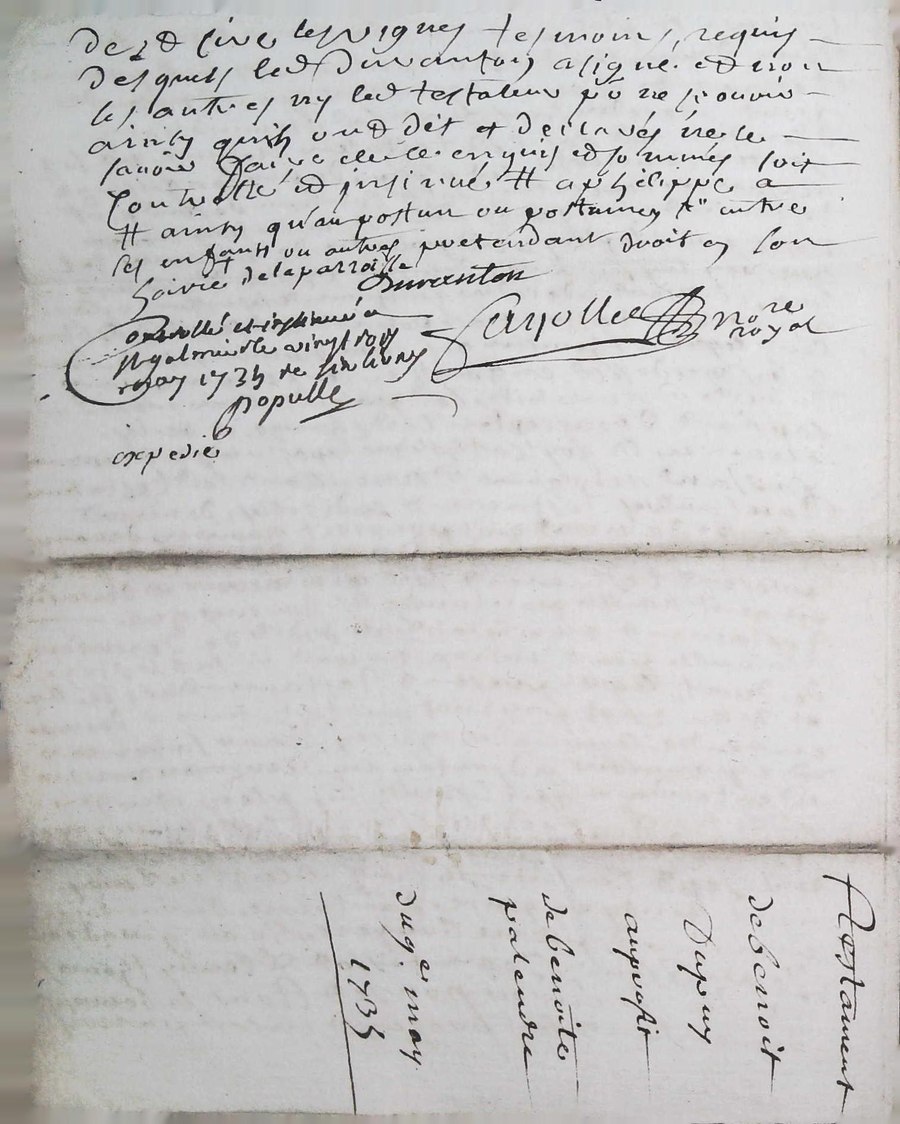 de st cire les vignes tesmoins requis
desquels led duranton a signé et non
les autres ny led testateur po ne pouvoir
ainsy quils ont dit et declarés ne le
savoir faire de ce enquis et sommés soit
controllé et insinué # a philippe a
# ainsy qu'au postun ou postumes et autre
ses enfants ou autres pretendant droit en son
hoirie de la parroisse
Duranton
Fayolle no.re
royal
controllé et insinué a
st galmier le vingt trois
may 1735 re six livres
populle
expedié
Testament
de benoit
Dupuy
au profit
de benoite
palendre
du 9.e may
1735